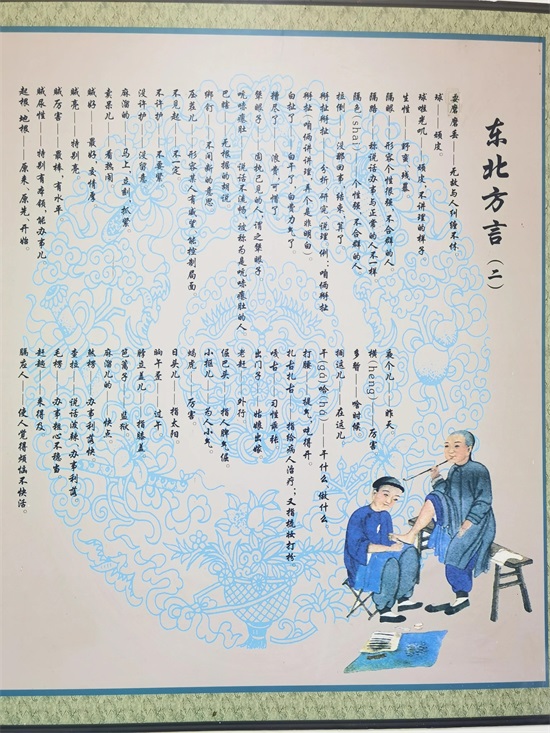 东北方言（二）
耍磨磨丢——无故与人纠缠不休。
球——顽皮。
球啦光叽——顽皮、不讲理的样子
生性——野蛮、残暴。
隔眼——形容个性很强，不合群的人
隔路——标说话办事与正常的人不一样。
隔色(shai)——个性强，不合群的人
拉倒——没那回事 结束、算了
掰扯掰扯——分析研究，说理 例：咱俩掰扯
掰扯（咱俩讲讲理，弄个是非明白）
白扯了——白干了，白费力气了。
糟尽了——浪费，可惜了
犟眼子——固执己见的人，谓之犟眼子。
吭哧瘪肚——说话不流畅，被称为是吭哧瘪肚的人
巴瞎——无根据的胡说
绑钉——不间断的意思
压茬儿——形容某人有威望，能控制局面
不见起——不一定
不许护——不要紧
没许护——没留意
卖呆儿——看热闹
麻溜的——马上，立刻，抓紧
贼好——最好，交情厚
贼亮——特别亮
贼厉害——最棒，有水平
贼尿性——特别有本领，能办事儿
起根、地根——原来、原先，开始。
夜个儿——昨天
横(heng)——厉害
多暂——啥时候
搁这儿——在这儿
干(gà)哈(há)——干什么、做什么
打腰——提气，吃得开。
扎古扎古——指给病人治疗；又指梳妆打扮。
嘎古——习性乖张
出门子——姑娘出嫁
老赶——外行。
倔巴头——指人脾气倔。
小抠儿——为人小气。
蝎虎——厉害。
日头儿——指太阳
晌午歪——过午
脖立盖儿——指膝盖
笆篱子——监狱
麻溜儿的——快点
煞楞——办事利落快
查拉——说话泼辣、办事利落
毛楞——办事粗心不稳当
赶趟——来得及
膈应人——使人觉得烦恼不快活。